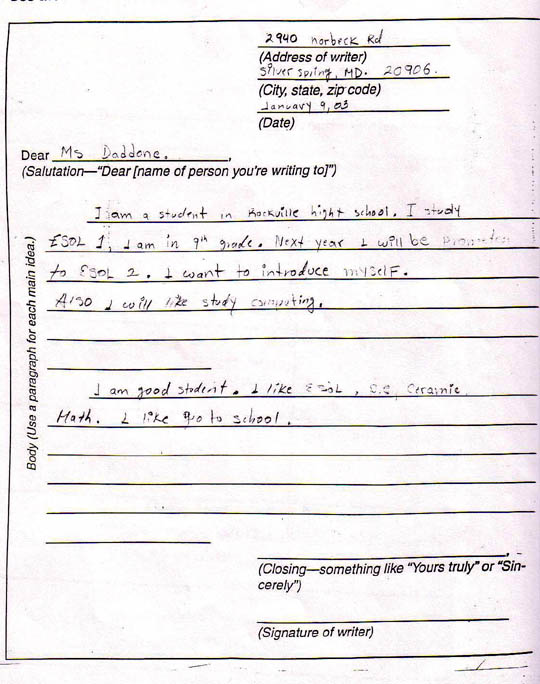 2940 norbeck Rd
(Address of writer)
Silver spring, MD. 20906.
(City, state, zip code)
January 9, 03
(Date)
Dear Ms Daddone. ,
(Salutation—“Dear [name of person you're writing to]”)
Body (Use a paragraph for each main idea.)
I am a student in Rockville hight school. I study
ESOL 1, I am in 9th grade. Next year I will be
to ESOL 2. I want to introduce myself.
Also I will like study computing.
I am good student. I like ESOL, Ceramic
Math. I like go to school.
,
(Closing—something like “Yours truly” or “Sin-
cerely”)
(Signature of writer)